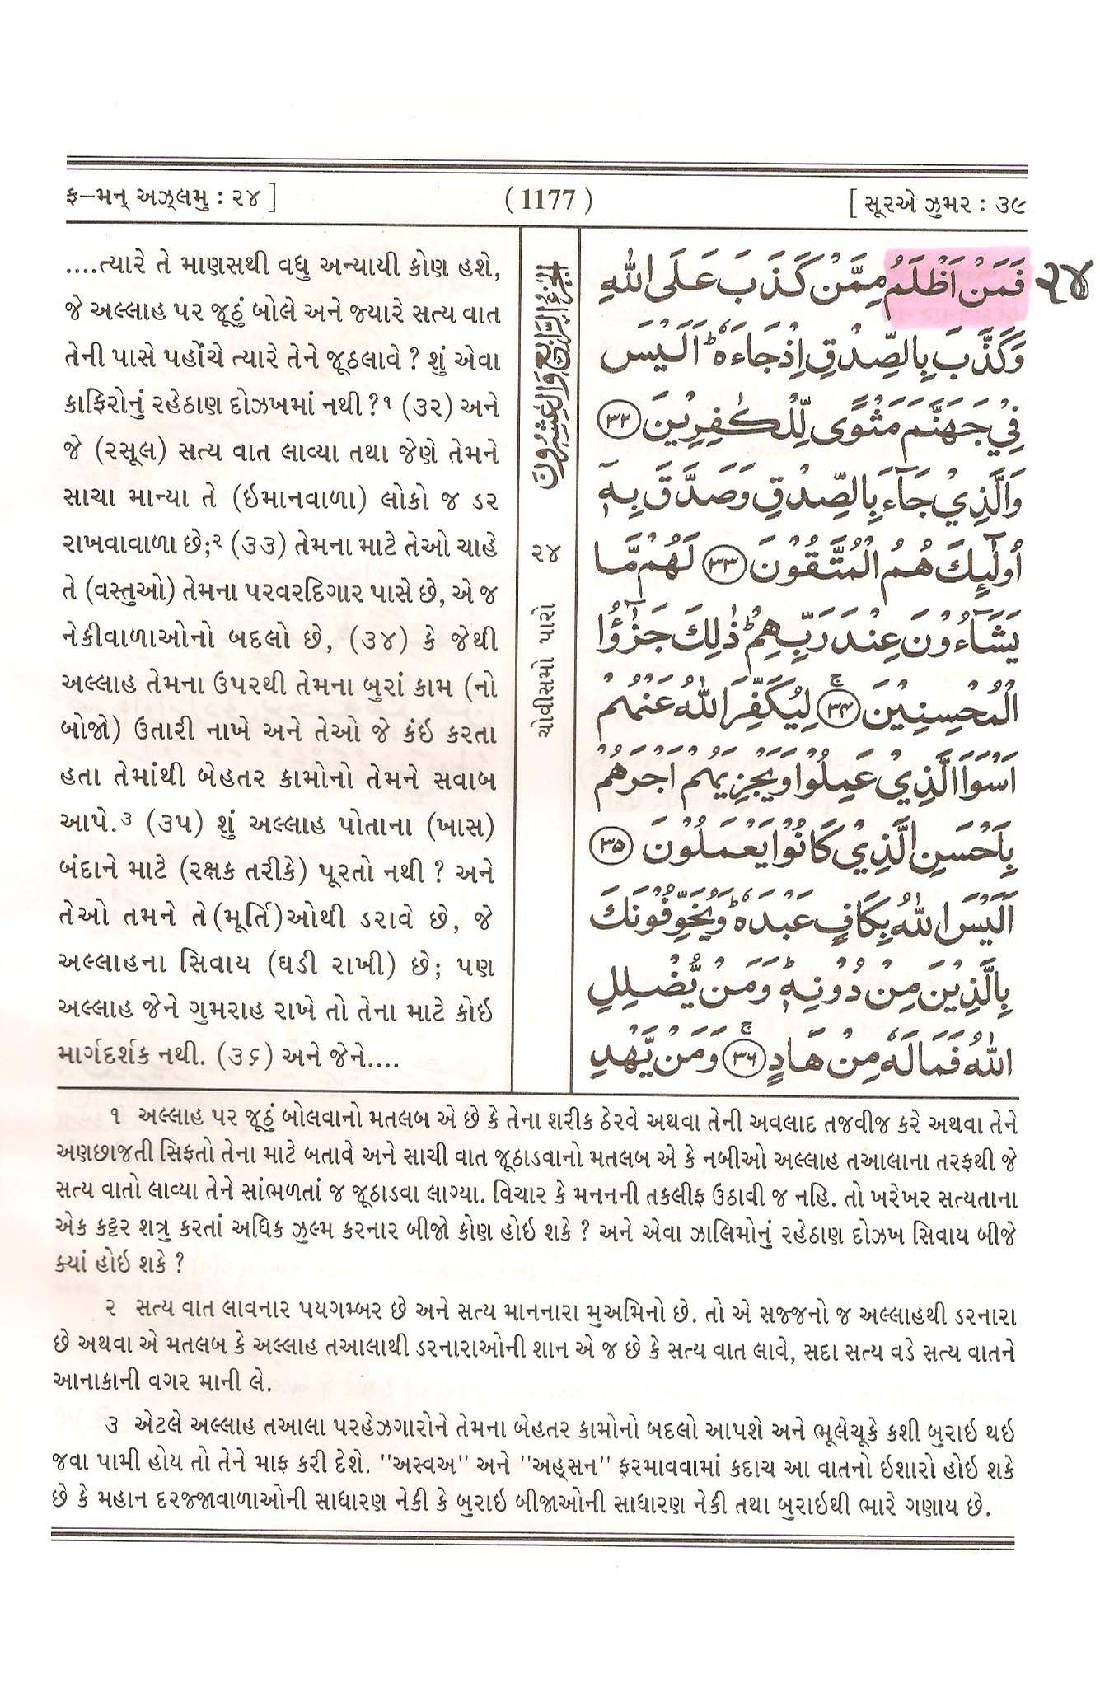 ફ–મન્ અઝ્લમુ : ૨૪ ]
( 1177 )
[ સૂરએ ઝુમર : ૩૯
....ત્યારે તે માણસથી વધુ અન્યાયી કોણ હશે,
જે અલ્લાહ પર જૂઠું બોલે અને જ્યારે સત્ય વાત
તેની પાસે પહોંચે ત્યારે તેને જૂઠલાવે ? શું એવા
કાફિરોનું રહેઠાણ દોઝખમાં નથી ?૧ (૩૨) અને
જે (રસૂલ) સત્ય વાત લાવ્યા તથા જેણે તેમને
સાચા માન્યા તે (ઇમાનવાળા) લોકો જ ડર
રાખવાવાળા છે;૨ (૩૩) તેમના માટે તેઓ ચાહે
તે (વસ્તુઓ) તેમના પરવરદિગાર પાસે છે, એ જ
નેકીવાળાઓનો બદલો છે, (૩૪) કે જેથી
અલ્લાહ તેમના ઉપરથી તેમના બુરાં કામ (નો
બોજો) ઉતારી નાખે અને તેઓ જે કંઇ કરતા
હતા તેમાંથી બેહતર કામોનો તેમને સવાબ
આપે.૩ (૩૫) શું અલ્લાહ પોતાના (ખાસ)
બંદાને માટે (રક્ષક તરીકે) પૂરતો નથી ? અને
તેઓ તમને તે(મૂર્તિ)ઓથી ડરાવે છે, જે
અલ્લાહના સિવાય (ઘડી રાખી) છે; પણ
અલ્લાહ જેને ગુમરાહ રાખે તો તેના માટે કોઇ
માર્ગદર્શક નથી. (૩૬) અને જેને....
اَلْجُزْءُ الرَّابِعُ وَالْعِشْرُوْنَ
૨૪
ચોવીસમો પારો
فَمَنْ اَظْلَمُ مِمَّنْ كَذَبَ عَلَى اللّٰهِ
૨૪
وَكَذَّبَ بِالصِّدْقِ اِذْ جَآءَهٗ ؕ اَلَيْسَ
فِيْ جَهَنَّمَ مَثْوًى لِّلْكٰفِرِيْنَ ﴿٣٢﴾
وَالَّذِيْ جَآءَ بِالصِّدْقِ وَصَدَّقَ بِهٖۤ
اُولٰٓئِكَ هُمُ الْمُتَّقُوْنَ ﴿٣٣﴾ لَهُمْ مَّا
يَشَآءُوْنَ عِنْدَ رَبِّهِمْ ؕ ذٰلِكَ جَزٰٓؤُا
الْمُحْسِنِيْنَ ﴿٣٤﴾ لِيُكَفِّرَ اللّٰهُ عَنْهُمْ
اَسْوَاَ الَّذِيْ عَمِلُوْا وَيَجْزِيَهُمْ اَجْرَهُمْ
بِاَحْسَنِ الَّذِيْ كَانُوْا يَعْمَلُوْنَ ﴿٣٥﴾
اَلَيْسَ اللّٰهُ بِكَافٍ عَبْدَهٗ ؕ وَيُخَوِّفُوْنَكَ
بِالَّذِيْنَ مِنْ دُوْنِهٖ ؕ وَمَنْ يُّضْلِلِ
اللّٰهُ فَمَا لَهٗ مِنْ هَادٍ ﴿٣٦﴾ وَمَنْ يَّهْدِ
૧ અલ્લાહ પર જૂઠું બોલવાનો મતલબ એ છે કે તેના શરીક ઠેરવે અથવા તેની અવલાદ તજવીજ કરે અથવા તેને
અણછાજતી સિફતો તેના માટે બતાવે અને સાચી વાત જૂઠાડવાનો મતલબ એ કે નબીઓ અલ્લાહ તઆલાના તરફથી જે
સત્ય વાતો લાવ્યા તેને સાંભળતાં જ જૂઠાડવા લાગ્યા. વિચાર કે મનનની તકલીફ ઉઠાવી જ નહિ. તો ખરેખર સત્યતાના
એક કટ્ટર શત્રુ કરતાં અધિક ઝુલ્મ કરનાર બીજો કોણ હોઇ શકે ? અને એવા ઝાલિમોનું રહેઠાણ દોઝખ સિવાય બીજે
ક્યાં હોઇ શકે ?
૨ સત્ય વાત લાવનાર પયગમ્બર છે અને સત્ય માનનારા મુઅમિનો છે. તો એ સજ્જનો જ અલ્લાહથી ડરનારા
છે અથવા એ મતલબ કે અલ્લાહ તઆલાથી ડરનારાઓની શાન એ જ છે કે સત્ય વાત લાવે, સદા સત્ય વડે સત્ય વાતને
આનાકાની વગર માની લે.
૩ એટલે અલ્લાહ તઆલા પરહેઝગારોને તેમના બેહતર કામોનો બદલો આપશે અને ભૂલેચૂકે કશી બુરાઇ થઇ
જવા પામી હોય તો તેને માફ કરી દેશે. "અસ્વઅ" અને "અહ્સન" ફરમાવવામાં કદાચ આ વાતનો ઇશારો હોઇ શકે
છે કે મહાન દરજ્જાવાળાઓની સાધારણ નેકી કે બુરાઇ બીજાઓની સાધારણ નેકી તથા બુરાઇથી ભારે ગણાય છે.